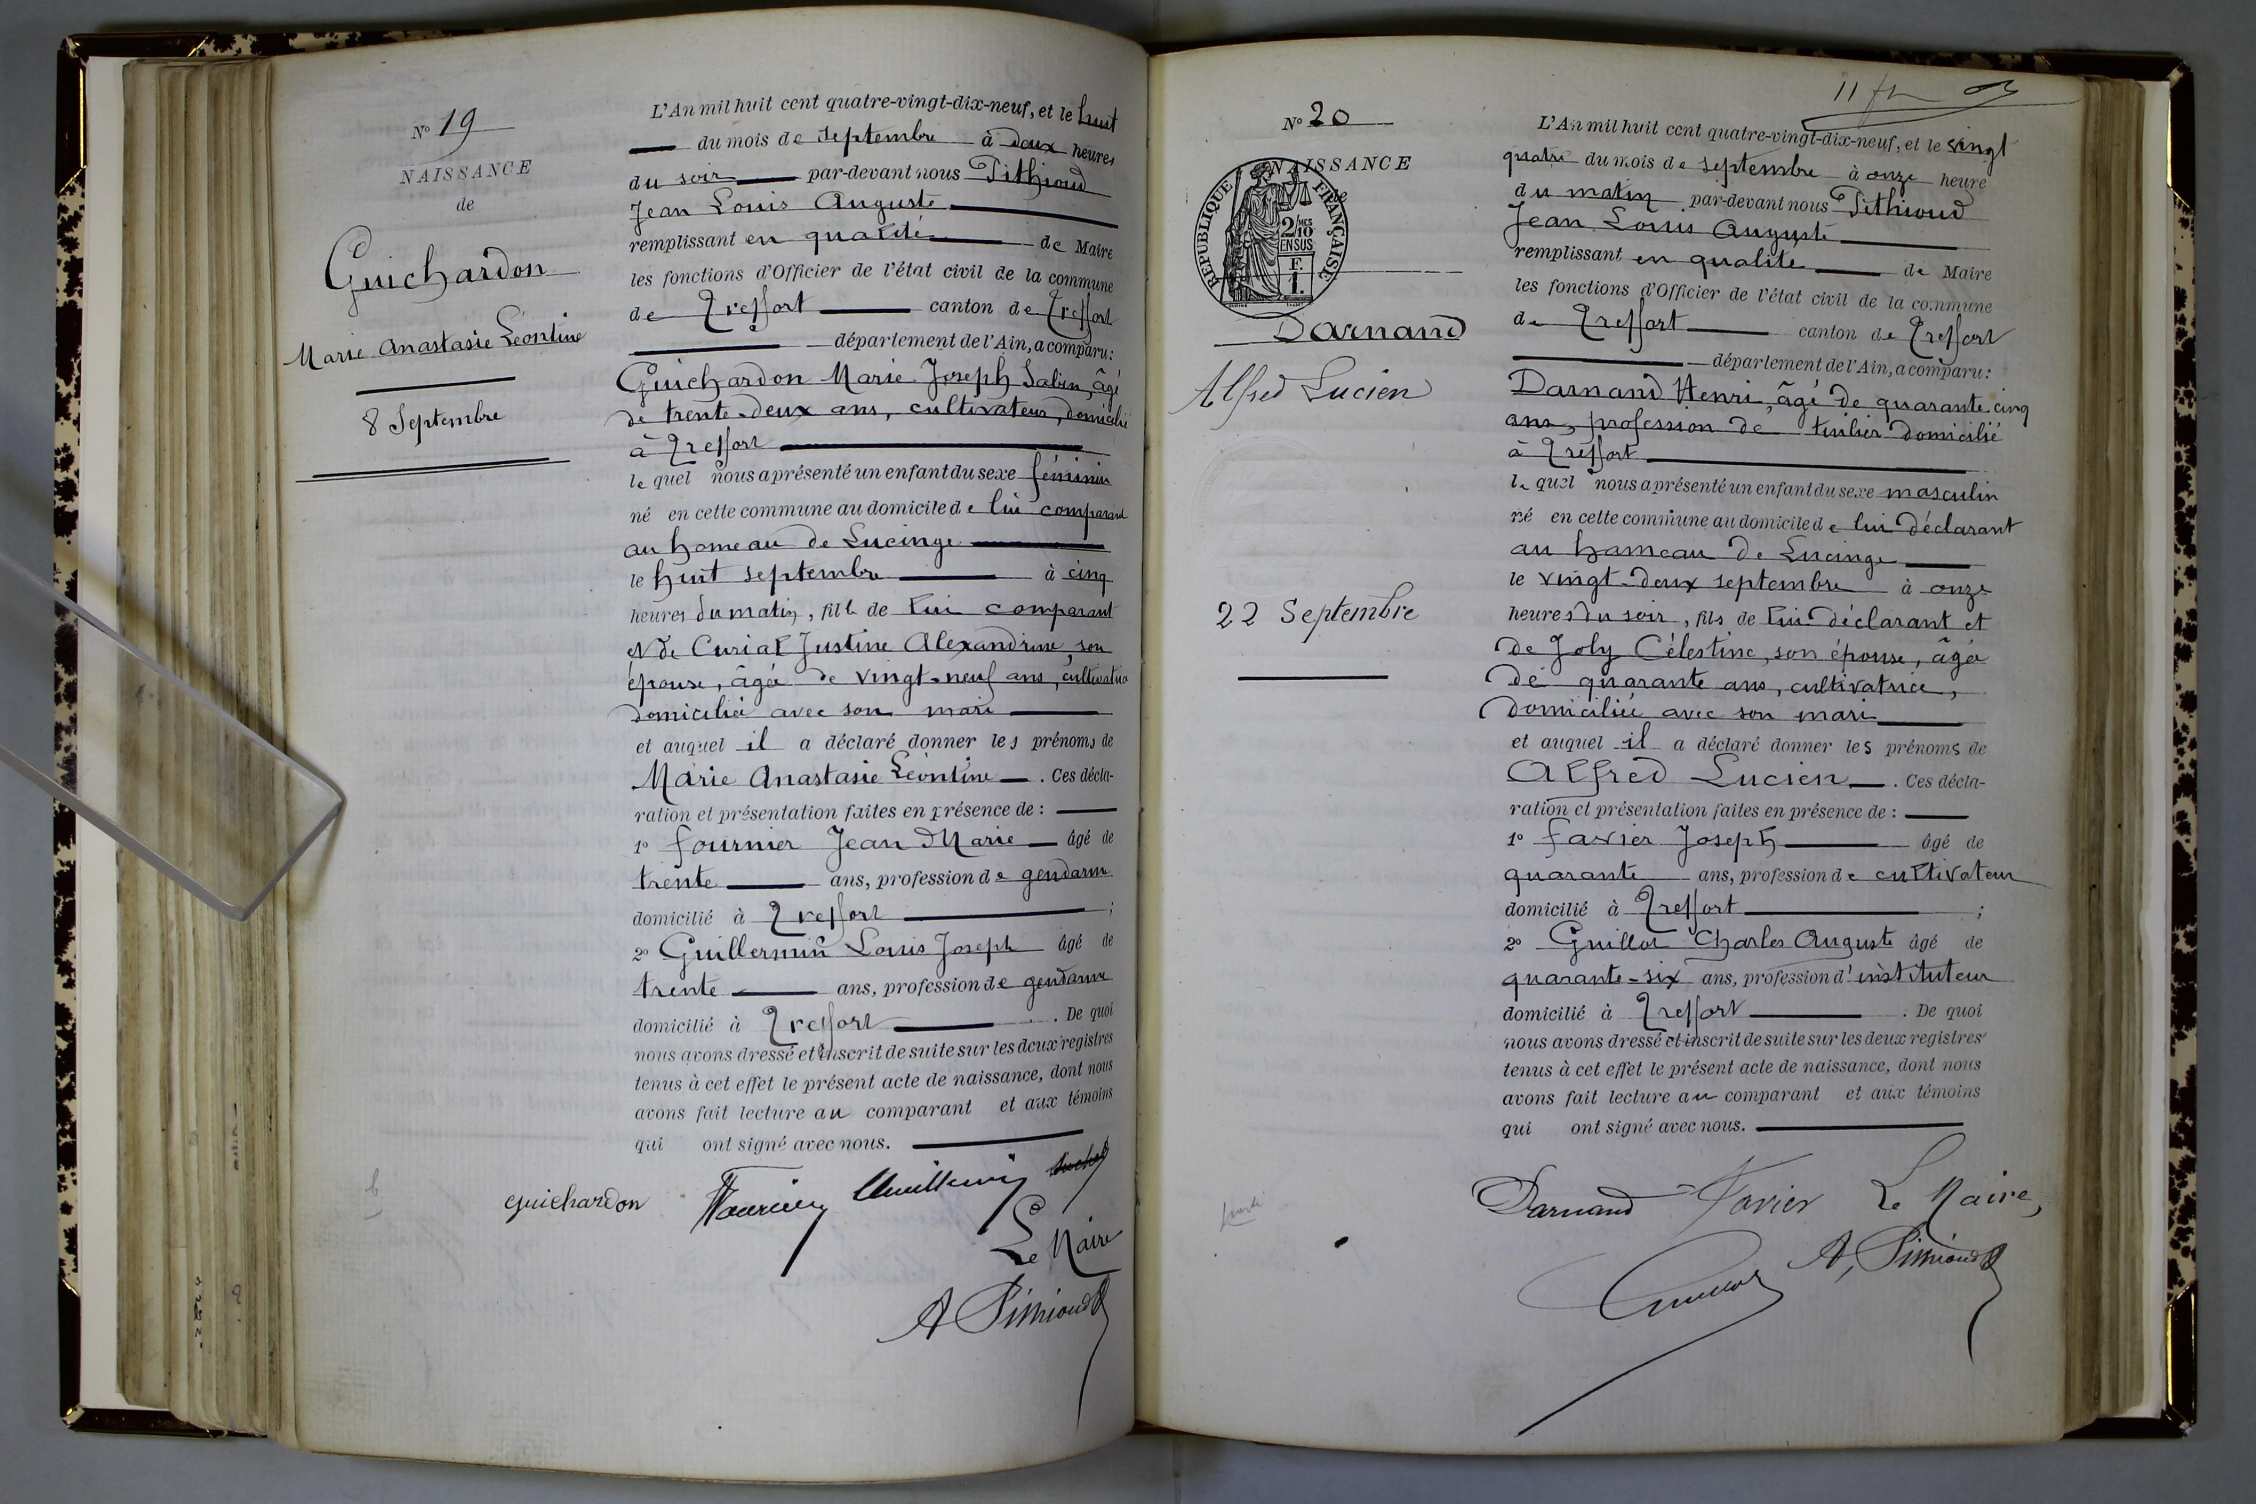 N° 19
NAISSANCE
de
Guichardon
Marie Anastasie Léontine
8 Septembre
L'An mil huit cent quatre-vingt-dix-neuf, et le huit
du mois de septembre à deux heures
du soir par-devant nous Pithioud
Jean Louis Auguste
remplissant en qualité de Maire
les fonctions d'Officier de l'état civil de la commune
de Treffort canton de Treffort
département de l'Ain, a comparu:
Guichardon Marie Joseph Salin, âgé
de trente-deux ans, cultivateur, domicilié
à Treffort
lequel nous a présenté un enfant du sexe féminin
né en cette commune au domicile de lui comparant
au hameau de Lucinge
le huit septembre à cinq
heures du matin, fille de lui comparant
et de Curial Justine Alexandrine, son
épouse, âgée de vingt-neuf ans, cultivatrice
domiciliée avec son mari
et auquel il a déclaré donner les prénoms de
Marie Anastasie Léontine. Ces décla-
ration et présentation faites en présence de :
1° Fournier Jean Marie âgé de
trente ans, profession de gendarme
domicilié à Treffort ;
2° Guillermin Louis Joseph âgé de
trente ans, profession de gendarme
domicilié à Treffort. De quoi
nous avons dressé et inscrit de suite sur les deux registres
tenus à cet effet le présent acte de naissance, dont nous
avons fait lecture au comparant et aux témoins
qui ont signé avec nous.
Guichardon Fournier Guillermin
Le Maire
A Pithioud
N° 20
NAISSANCE
REPUBLIQUE FRANÇAISE
2/10 MES
EN SUS
F.
1.
Darnand
Alfred Lucien
22 Septembre
L'An mil huit cent quatre-vingt-dix-neuf, et le vingt
quatre du mois de septembre à onze heure
du matin par-devant nous Pithioud
Jean Louis Auguste
remplissant en qualité de Maire
les fonctions d'Officier de l'état civil de la commune
de Treffort canton de Treffort
département de l'Ain, a comparu:
Darnand Henri, âgé de quarante-cinq
ans, profession de tuilier domicilié
à Treffort
lequel nous a présenté un enfant du sexe masculin
né en cette commune au domicile de lui déclarant
au hameau de Lucinge
le vingt-deux septembre à onze
heures du soir, fils de lui déclarant et
de Joly Célestine, son épouse, âgée
de quarante ans, cultivatrice,
domiciliée avec son mari
et auquel il a déclaré donner les prénoms de
Alfred Lucien. Ces décla-
ration et présentation faites en présence de :
1° Favier Joseph âgé de
quarante ans, profession de cultivateur
domicilié à Treffort ;
2° Guillot Charles Auguste âgé de
quarante-six ans, profession d'instituteur
domicilié à Treffort. De quoi
nous avons dressé et inscrit de suite sur les deux registres
tenus à cet effet le présent acte de naissance, dont nous
avons fait lecture au comparant et aux témoins
qui ont signé avec nous.
Darnand Favier Le Maire,
A, Pithioud